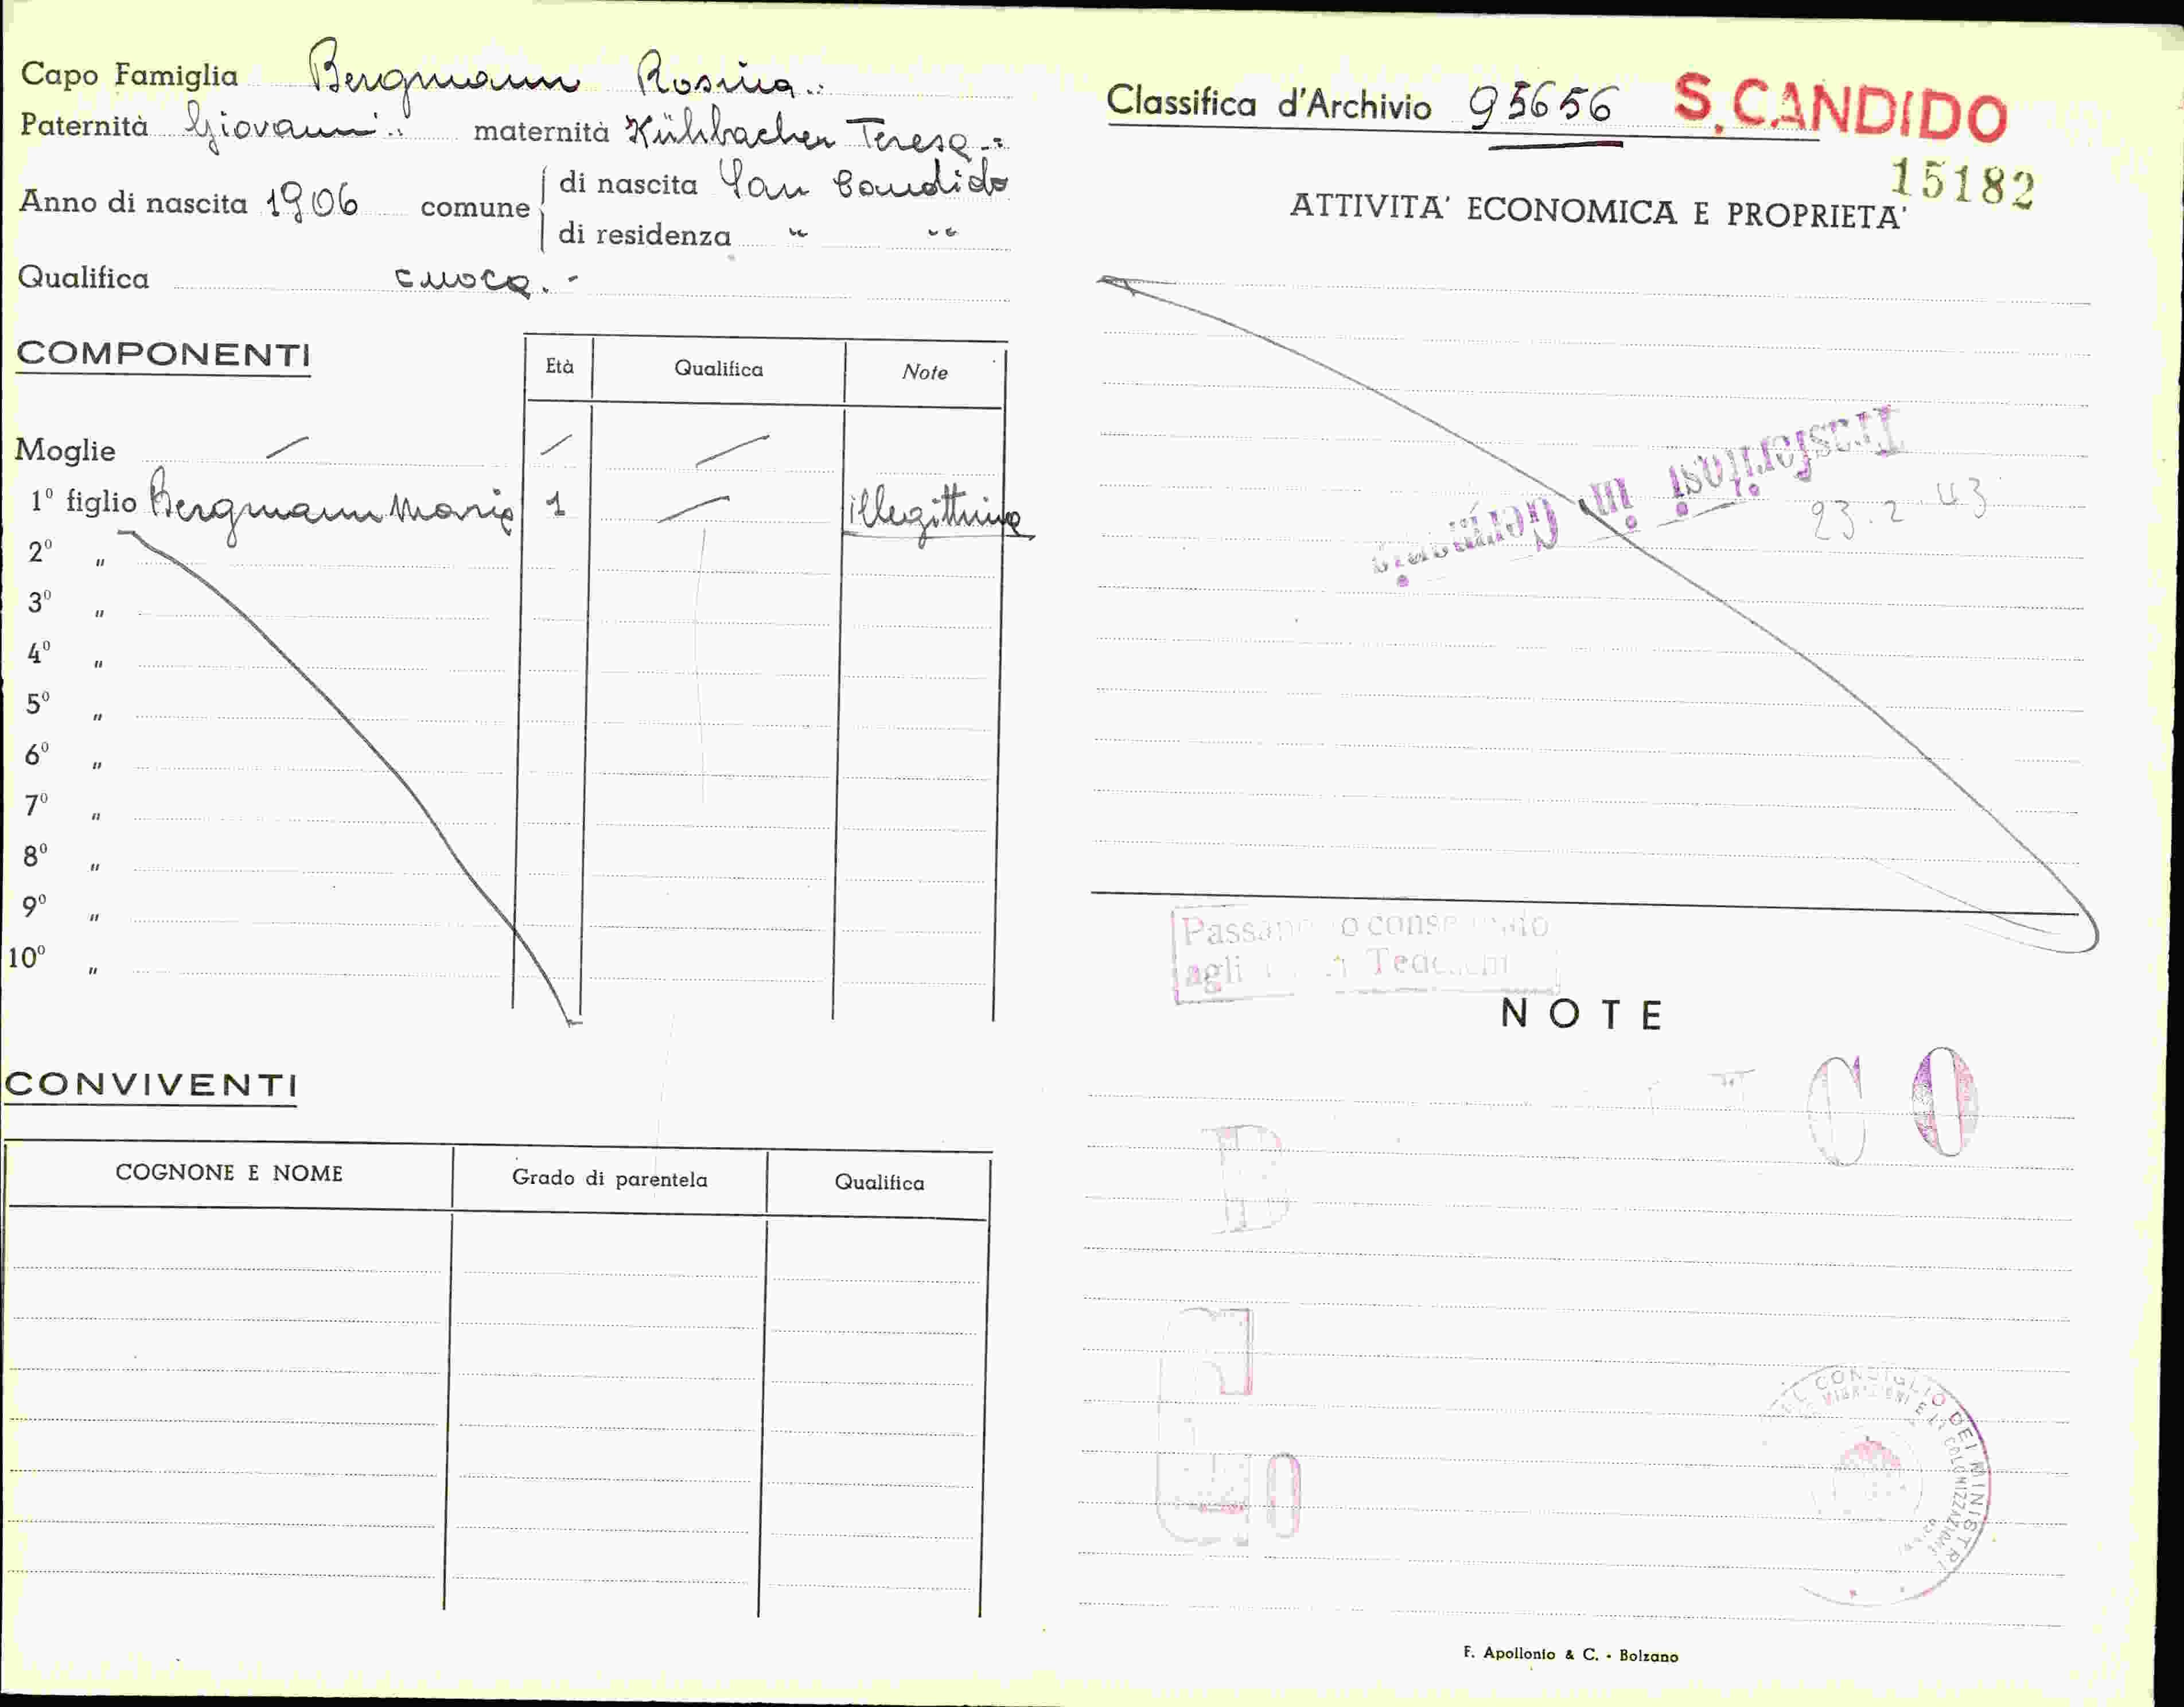 Capo Famiglia Bergmann Rosina.
Paternità Giovanni maternità Kühbacher Teresa
Anno di nascita 1906 comune di nascita San Candido
di residenza " "
Qualifica cuoca.-
COMPONENTI
Età Qualifica Note
Moglie / / /
1º figlio Bergmann Maria 1 / illegittima
2º "
3º "
4º "
5º "
6º "
7º "
8º "
9º "
10º "
CONVIVENTI
COGNONE E NOME Grado di parentela Qualifica
Classifica d'Archivio 95656 S. CANDIDO
15182
ATTIVITA' ECONOMICA E PROPRIETA'
Trasferitosi in Germania
23.2.43
agli
NOTE
CO
B
IL CONSIGLIO DEI MINISTRI
MIGRAZIONI E LA COLONIZZAZIONE
F. Apollonio & C. - Bolzano